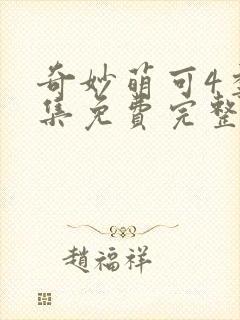 奇妙萌可4
集免费完整
趙福祥